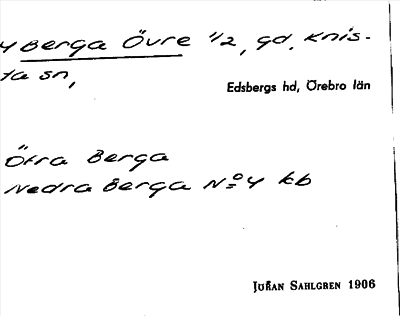 4 Berga Övre 1/2, gd, Knis-
ta sn,
Edsbergs hd, Örebro län
Öfra Berga
Nedra Berga No 4 kb
Johan Sahlgren 1906